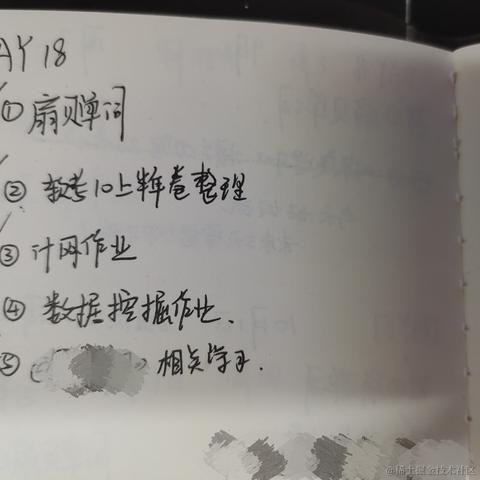 AY 18
① 扇贝单词
② 软考10上半年卷整理
③ 计网作业
④ 数据挖掘作业.
⑤ 相关学习.
@稀土掘金技术社区